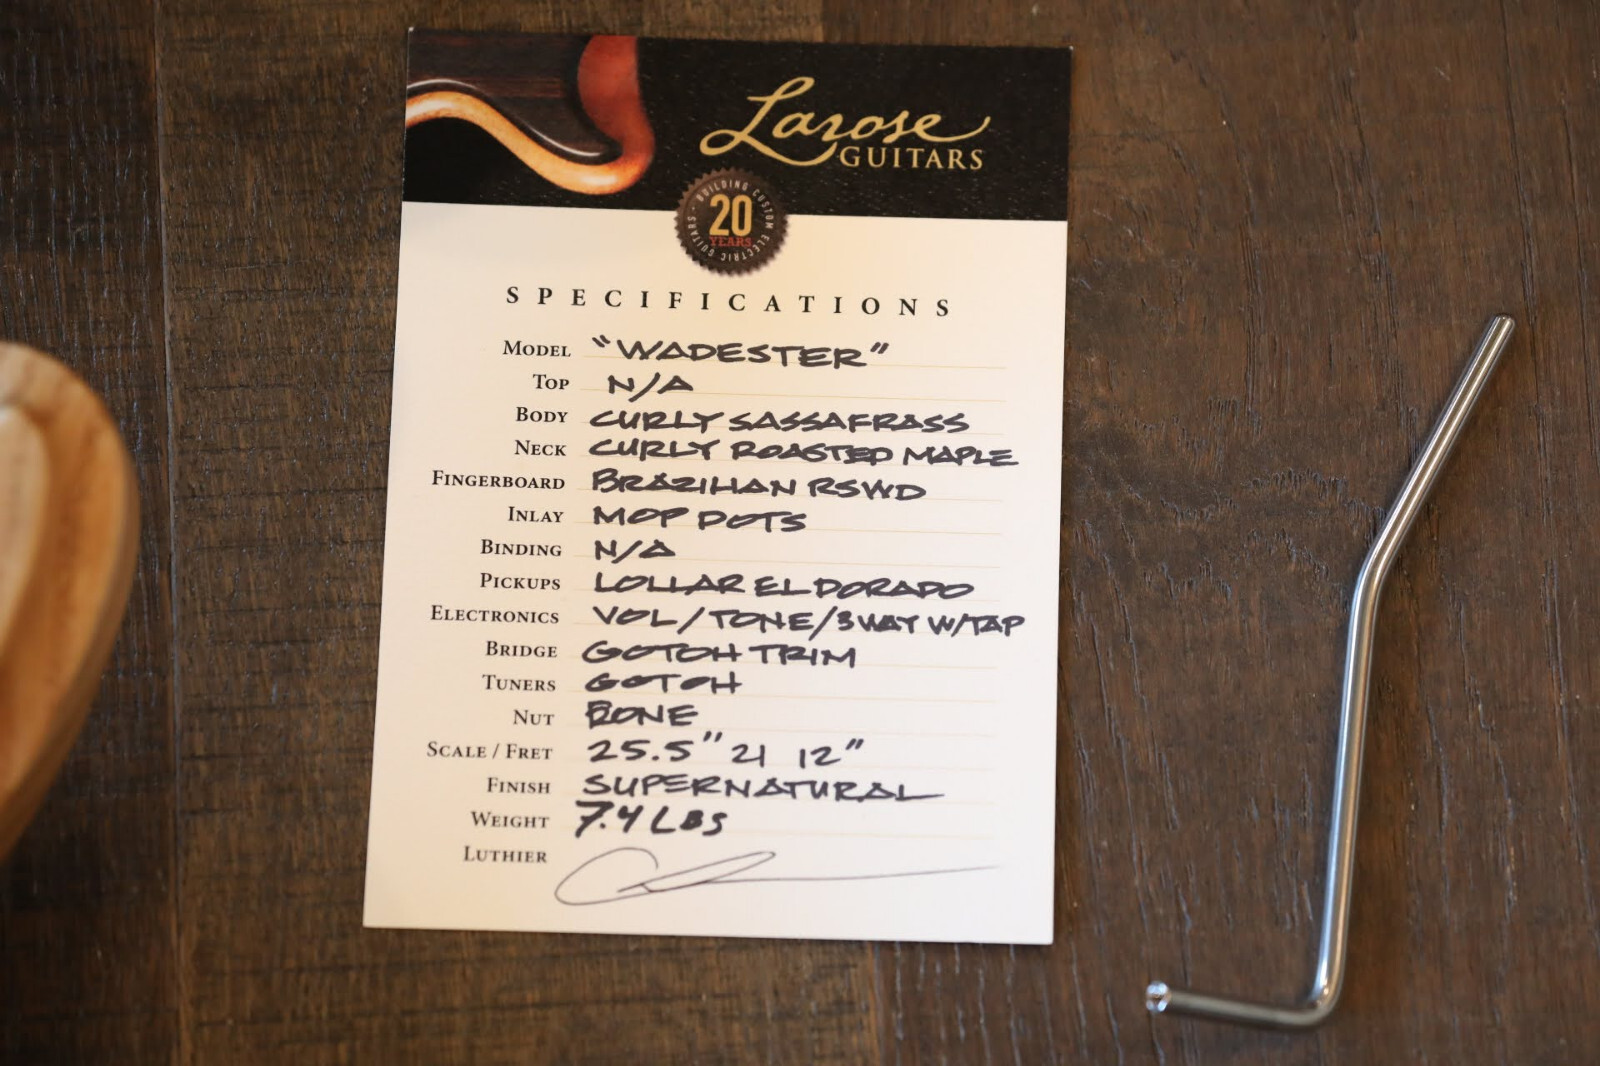 Larose
GUITARS
BUILDING CUSTOM ELECTRIC GUITARS
20
YEARS
SPECIFICATIONS
MODEL "WADESTER"
TOP N/A
BODY CURLY SASSAFRASS
NECK CURLY ROASTED MAPLE
FINGERBOARD BRAZILIAN RSWD
INLAY MOP DOTS
BINDING N/A
PICKUPS LOLLAR EL DORADO
ELECTRONICS VOL/TONE/3WAY W/TAP
BRIDGE GOTOH TRIM
TUNERS GOTOH
NUT BONE
SCALE / FRET 25.5" 21 12"
FINISH SUPERNATURAL
WEIGHT 7.4 LBS
LUTHIER